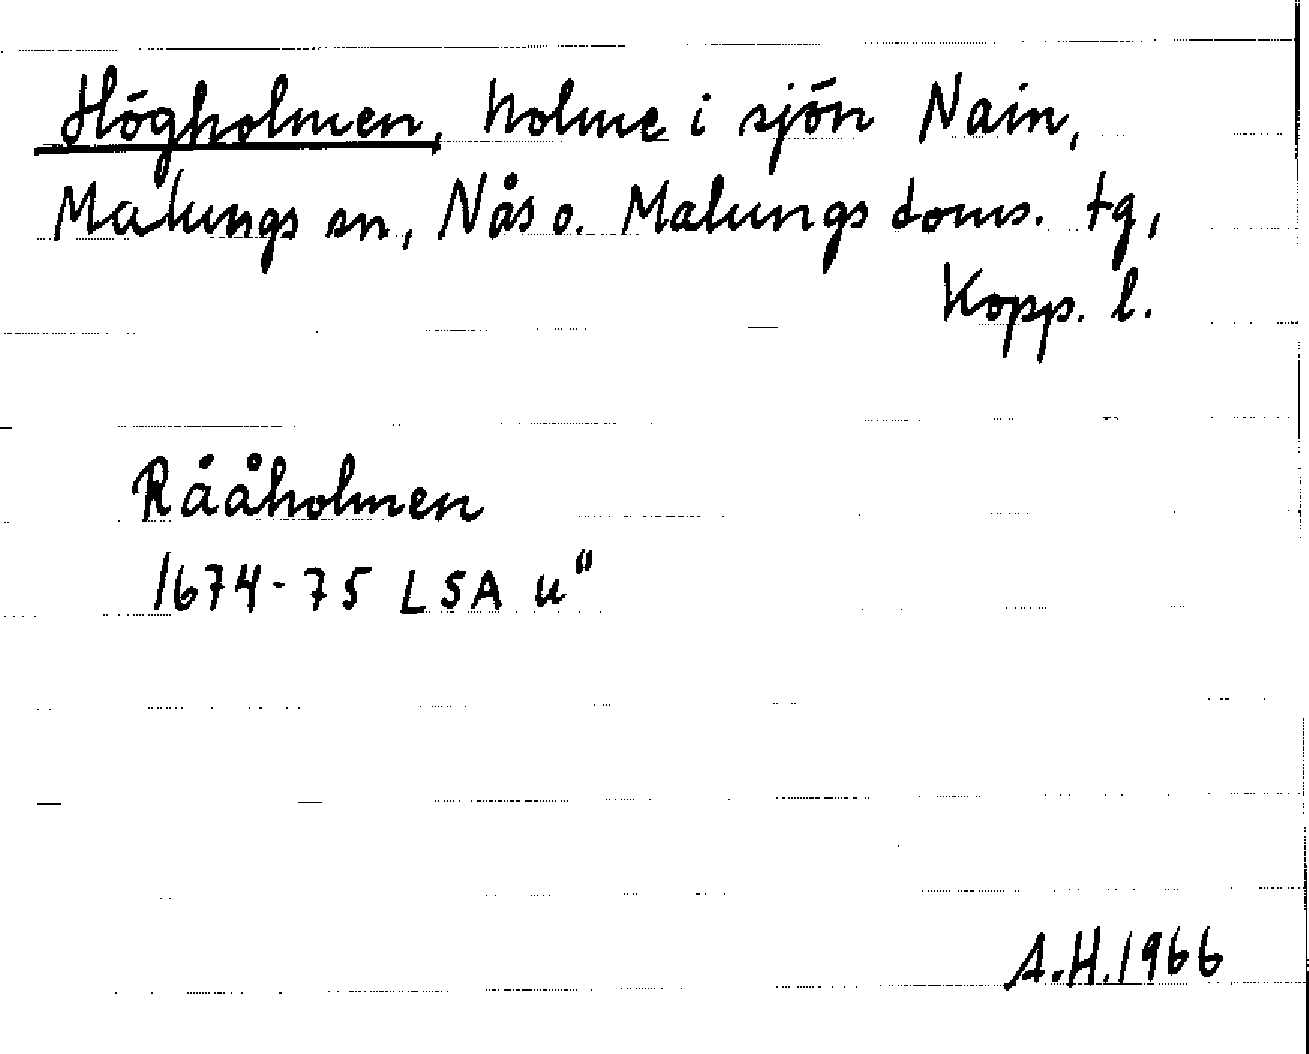 Högholmen, holme i sjön Nain,
Malungs sn, Nås o. Malungs doms. tg,
Kopp. l.
Rååholmen
1674-75 LSA u"
A.H.1966